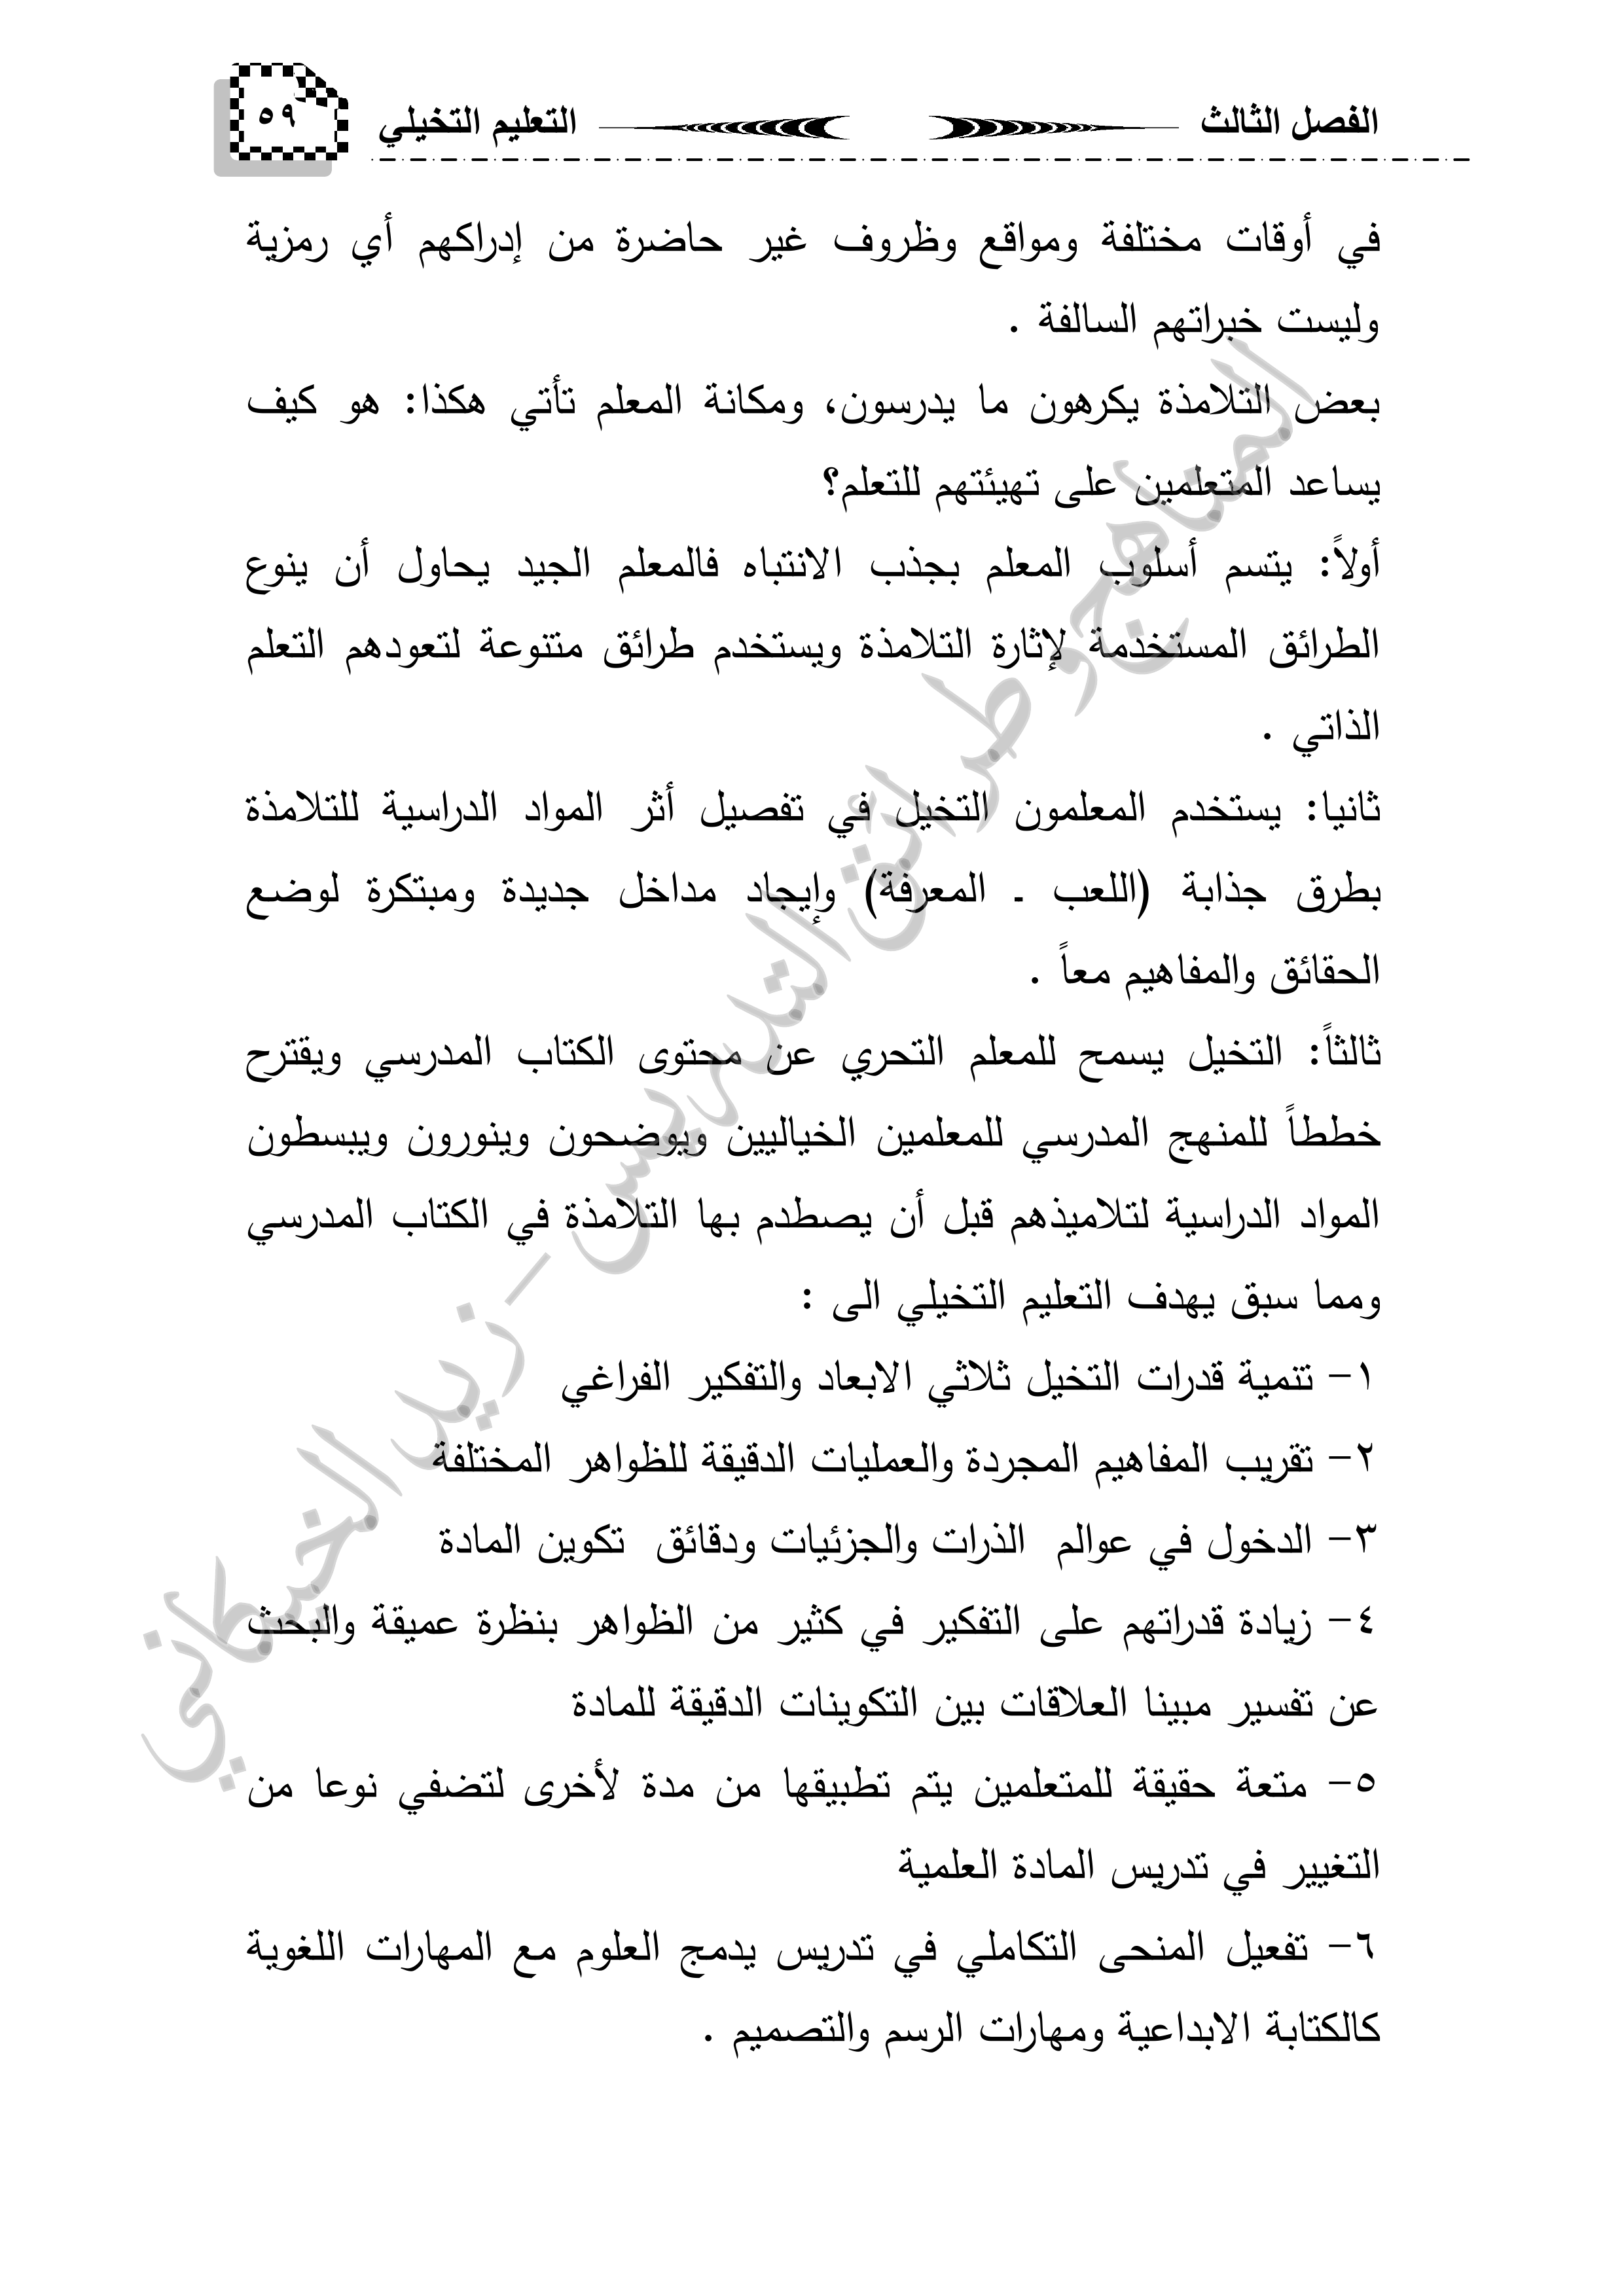 الفصل الثالث التعليم التخيلي ٥٩
في أوقات مختلفة ومواقع وظروف غير حاضرة من إدراكهم أي رمزية
وليست خبراتهم السالفة .
بعض التلامذة يكرهون ما يدرسون، ومكانة المعلم تأتي هكذا: هو كيف
يساعد المتعلمين على تهيئتهم للتعلم؟
أولاً: يتسم أسلوب المعلم بجذب الانتباه فالمعلم الجيد يحاول أن ينوع
الطرائق المستخدمة لإثارة التلامذة ويستخدم طرائق متنوعة لتعودهم التعلم
الذاتي .
ثانيا: يستخدم المعلمون التخيل في تفصيل أثر المواد الدراسية للتلامذة
بطرق جذابة (اللعب ـ المعرفة) وإيجاد مداخل جديدة ومبتكرة لوضع
الحقائق والمفاهيم معاً .
ثالثاً: التخيل يسمح للمعلم التحري عن محتوى الكتاب المدرسي ويقترح
خططاً للمنهج المدرسي للمعلمين الخياليين ويوضحون وينورون ويبسطون
المواد الدراسية لتلاميذهم قبل أن يصطدم بها التلامذة في الكتاب المدرسي
ومما سبق يهدف التعليم التخيلي الى :
١- تنمية قدرات التخيل ثلاثي الابعاد والتفكير الفراغي
٢- تقريب المفاهيم المجردة والعمليات الدقيقة للظواهر المختلفة
٣- الدخول في عوالم الذرات والجزئيات ودقائق تكوين المادة
٤- زيادة قدراتهم على التفكير في كثير من الظواهر بنظرة عميقة والبحث
عن تفسير مبينا العلاقات بين التكوينات الدقيقة للمادة
٥- متعة حقيقة للمتعلمين يتم تطبيقها من مدة لأخرى لتضفي نوعا من
التغيير في تدريس المادة العلمية
٦- تفعيل المنحى التكاملي في تدريس يدمج العلوم مع المهارات اللغوية
كالكتابة الابداعية ومهارات الرسم والتصميم .
المناهج وطرائق التدريس - زيد الخيكاني